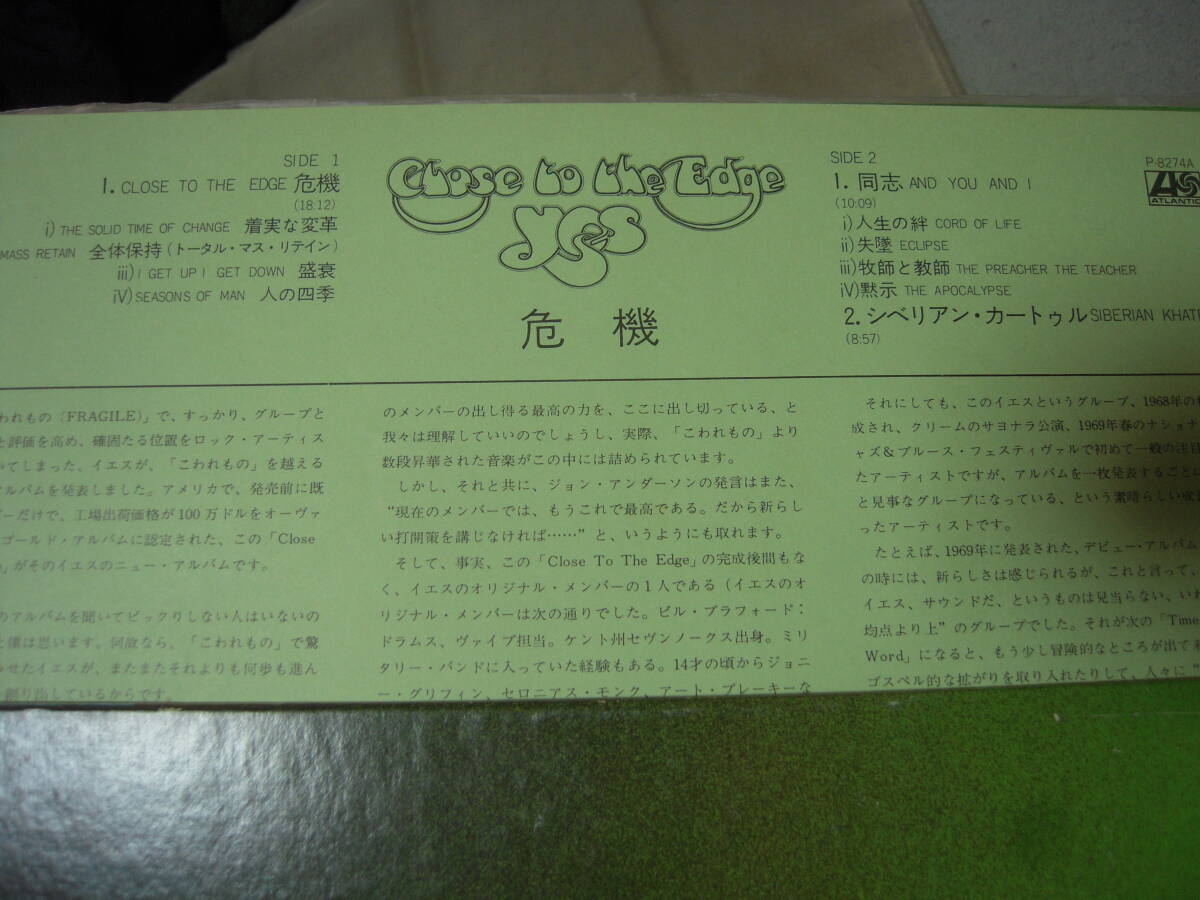 SIDE 1
1. CLOSE TO THE EDGE 危機
(18:12)
i) THE SOLID TIME OF CHANGE 着実な変革
MASS RETAIN 全体保持(トータル・マス・リテイン)
iii) I GET UP I GET DOWN 盛衰
iV) SEASONS OF MAN 人の四季
Close to the Edge
yes
危機
SIDE 2
1. 同志 AND YOU AND I
(10:09)
i) 人生の絆 CORD OF LIFE
ii) 失墜 ECLIPSE
iii) 牧師と教師 THE PREACHER THE TEACHER
iV) 黙示 THE APOCALYPSE
2. シベリアン・カートゥル SIBERIAN KHAT
(8:57)
P-8274A
ATLANTIC
われもの(FRAGILE)」で、すっかり、グループと
と評価を高め、確固たる位置をロック・アーティス
いてしまった、イエスが、「こわれもの」を越える
ルバムを発表しました。アメリカで、発売前に既
ーだけで、工場出荷価格が100万ドルをオーヴァ
ゴールド・アルバムに認定された、この「Close
」がそのイエスのニュー・アルバムです。
のアルバムを聞いてビックりしない人はいないの
と僕は思います。何故なら、「こわれもの」で驚
せたイエスが、またまたそれよりも何歩も進ん
創り出しているからです。
のメンバーの出し得る最高の力を、ここに出し切っている、と
我々は理解していいのでしょうし、実際、「こわれもの」より
数段昇華された音楽がこの中には詰められています。
しかし、それと共に、ジョン・アンダーソンの発言はまた、
“現在のメンバーでは、もうこれで最高である。だから新らし
い打開策を講じなければ……”と、いうようにも取れます。
そして、事実、この「Close To The Edge」の完成後間もな
く、イエスのオリジナル・メンバーの1人である(イエスのオ
リジナル・メンバーは次の通りでした。ビル・ブラフォード:
ドラムス、ヴァイブ担当。ケント州セヴンノークス出身。ミリ
タリー・バンドに入っていた経験もある。14才の頃からジョニ
ー・グリフィン、セロニアス・モンク、アート・ブレーキーな
それにしても、このイエスというグループ、1968年の
成され、クリームのサヨナラ公演、1969年春のナショナ
ャズ&ブルース・フェスティヴァルで初めて一般の注目
たアーティストですが、アルバムを一枚発表するごとに
と見事なグループになっている、という素晴らしい成
ったアーティストです。
たとえば、1969年に発表された、デビュー・アルバム
の時には、新らしさは感じられるが、これと言って、
イエス、サウンドだ、というものは見当らない、いわ
均点より上”のグループでした。それが次の「Time
Word」になると、もう少し冒険的なところが出て
ゴスペル的な拡がりを取り入れたりして、人々に